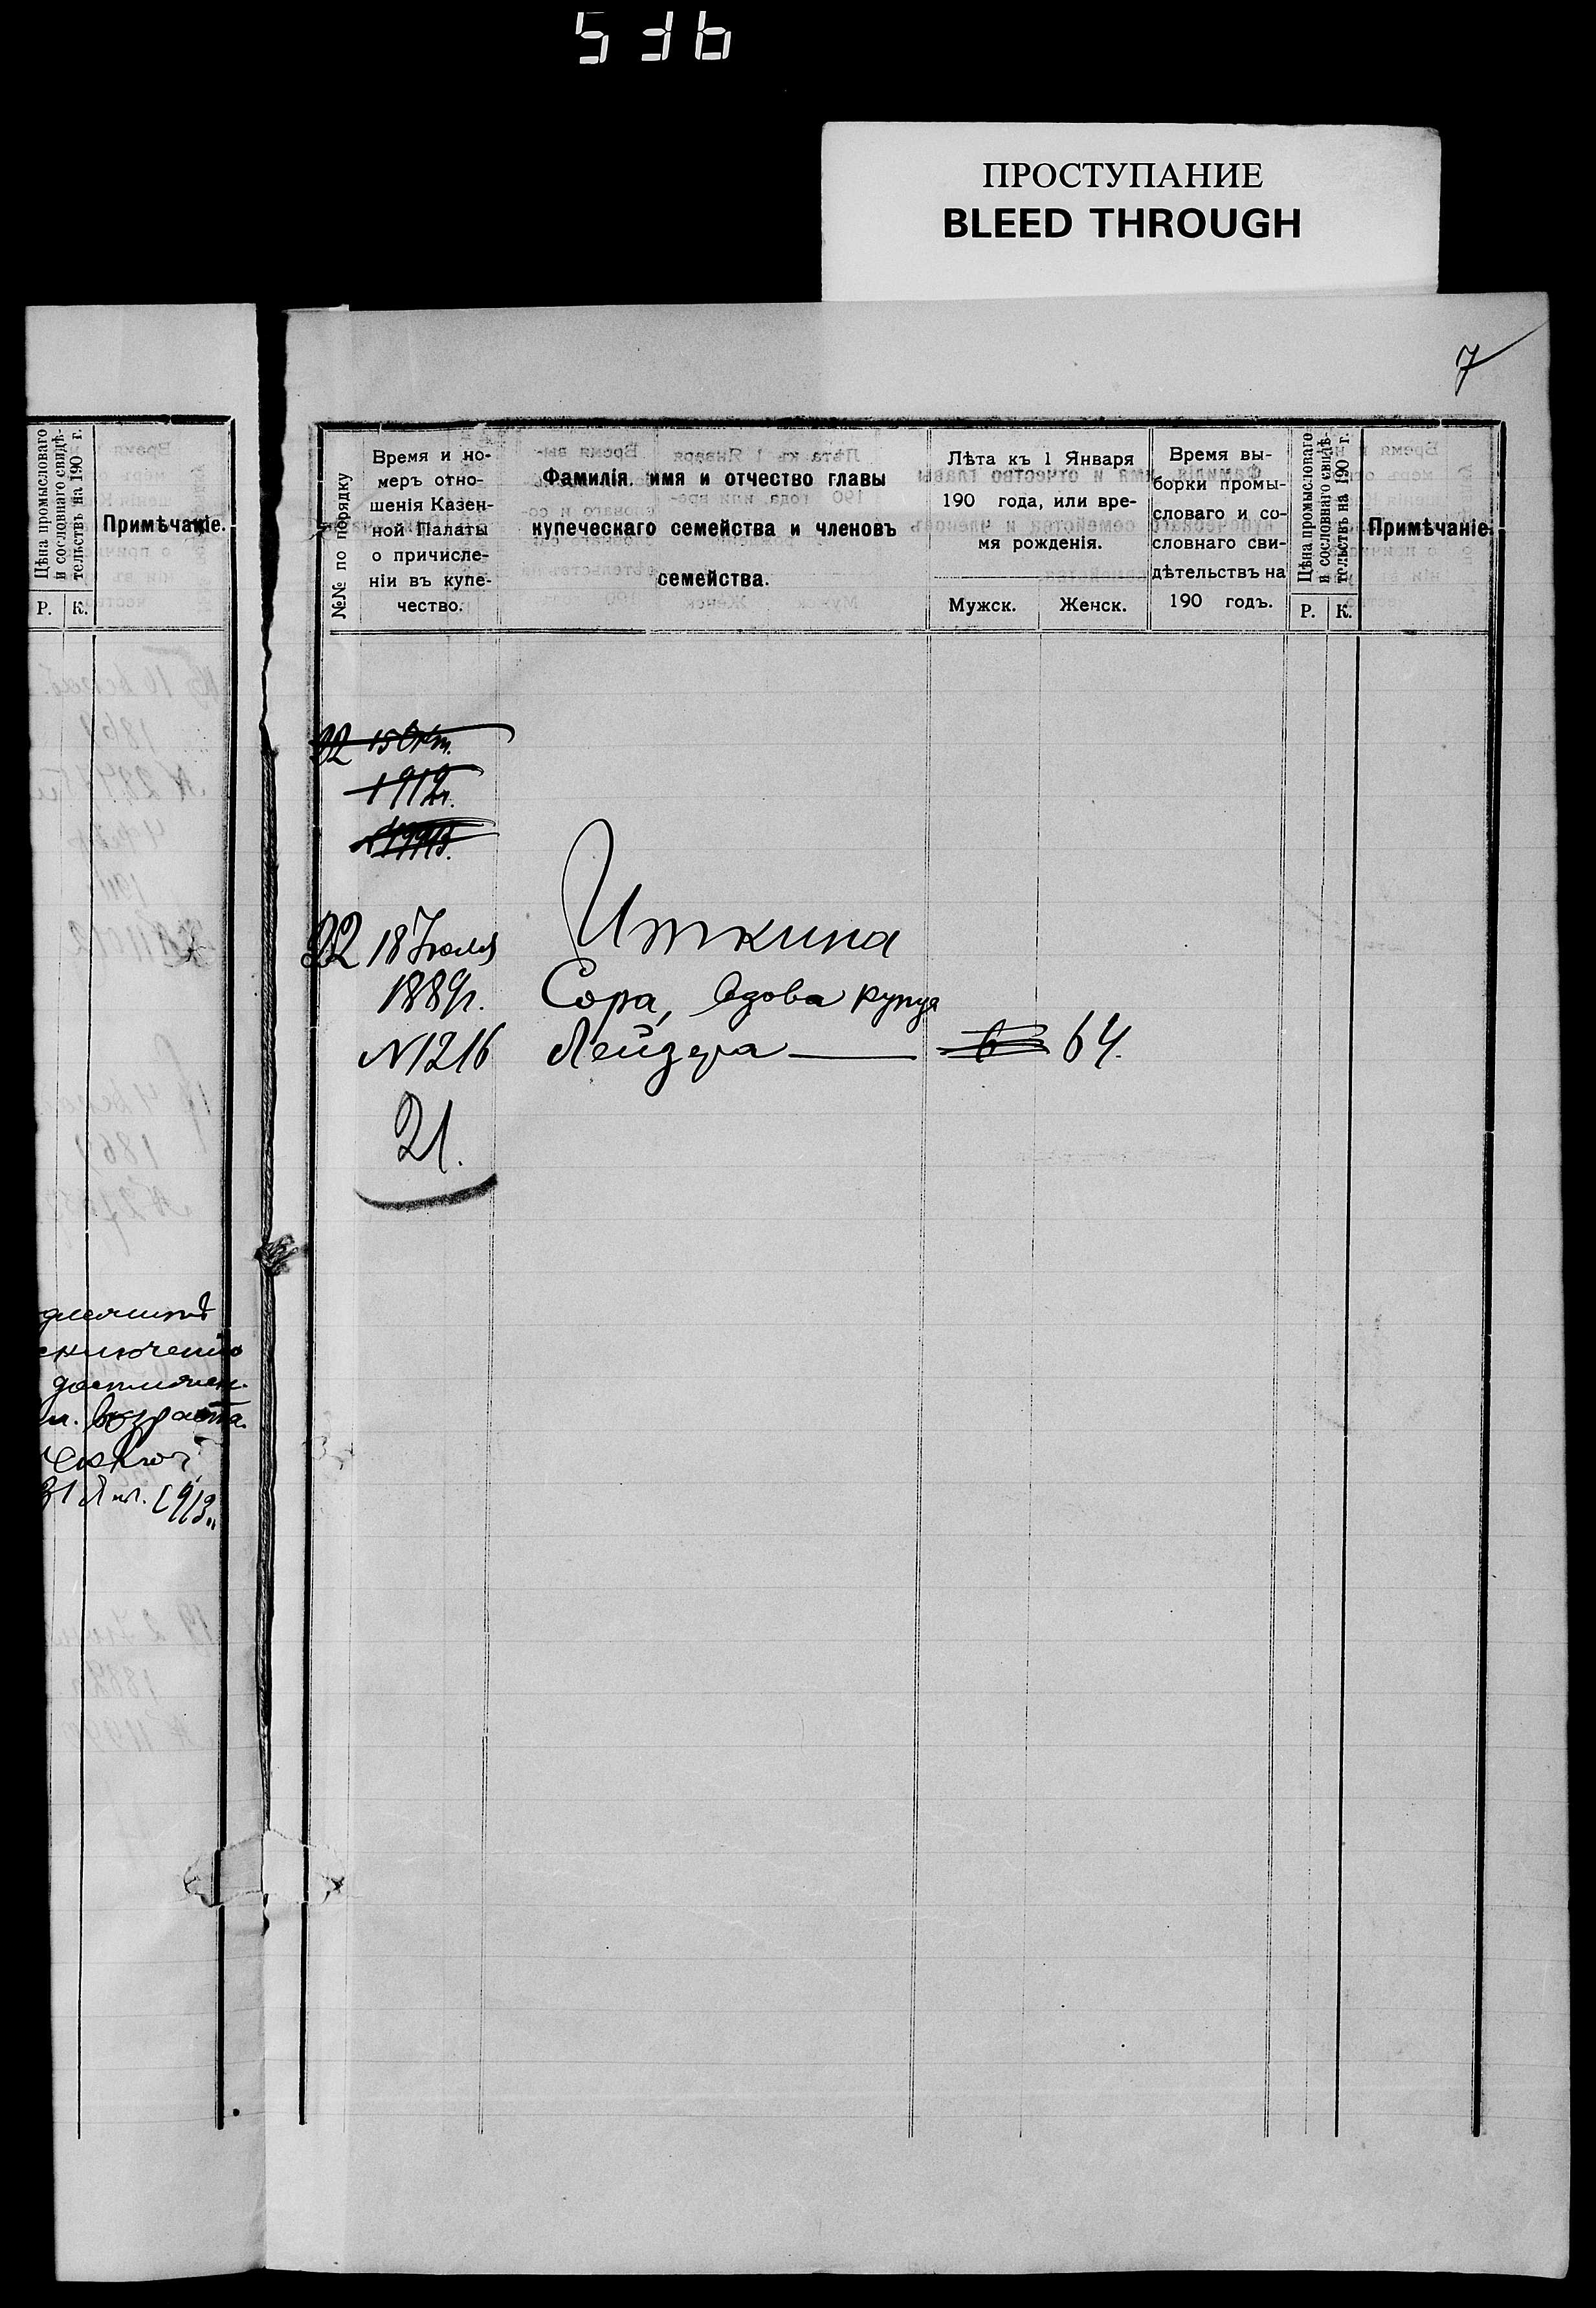 536
ПРОСТУПАНИЕ
BLEED THROUGH
7
Цѣна промысловаго
и сословнаго свидѣ-
тельствъ на 190 г.
Р. К.
Примѣчаніе.
возраста.
31 Янв. 1913
№№ по порядку
Время и но-
меръ отно-
шенія Казен-
ной Палаты
о причисле-
ніи въ купе-
чество.
Фамилія, имя и отчество главы
купеческаго семейства и членовъ
семейства.
Лѣта къ 1 Января
190 года, или вре-
мя рожденія.
Мужск. Женск.
Время вы-
борки промы-
словаго и со-
словнаго сви-
дѣтельствъ на
190 годъ.
Цѣна промысловаго
и сословнаго свидѣ-
тельствъ на 190 г.
Р. К.
Примѣчаніе.
22 15 Окт.
1912 г.
Иткина
22 18 Іюля
1889 г. Сора, вдова купца
N 1216 Лейзера 64.
21.